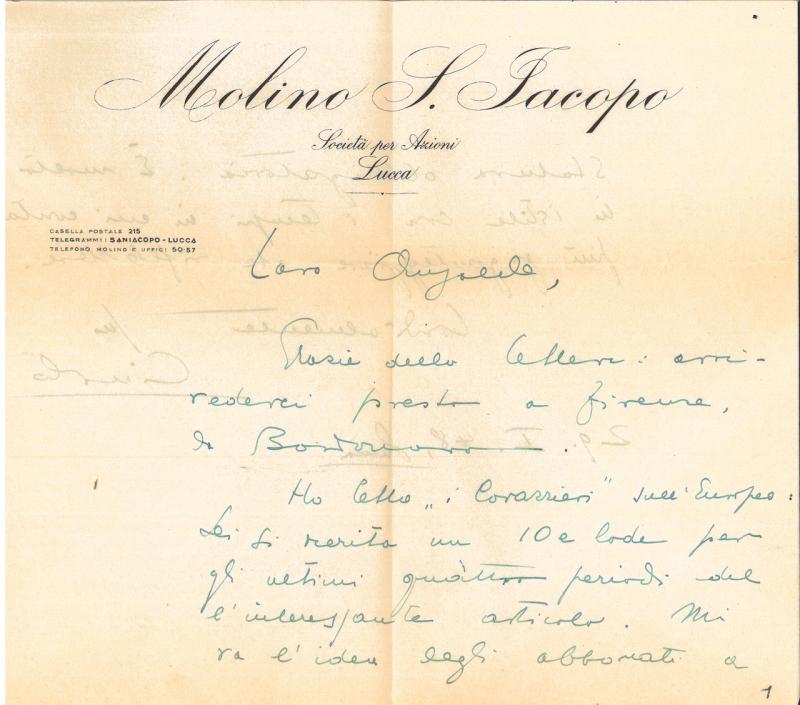 Molino S. Iacopo
Società per Azioni
Lucca
CASELLA POSTALE 215
TELEGRAMMI: SANIACOPO - LUCCA
TELEFONO MOLINO E UFFICI 50-57
Caro
Grazie della lettera: arri-
vederci presto a Firenze,
da
Ho letto „i Corazzieri" sull'Europeo:
Lei si merita un 10 e lode per
gli ultimi quattro periodi del
l'interessante articolo. Mi
va l'idea degli abbonati a
1